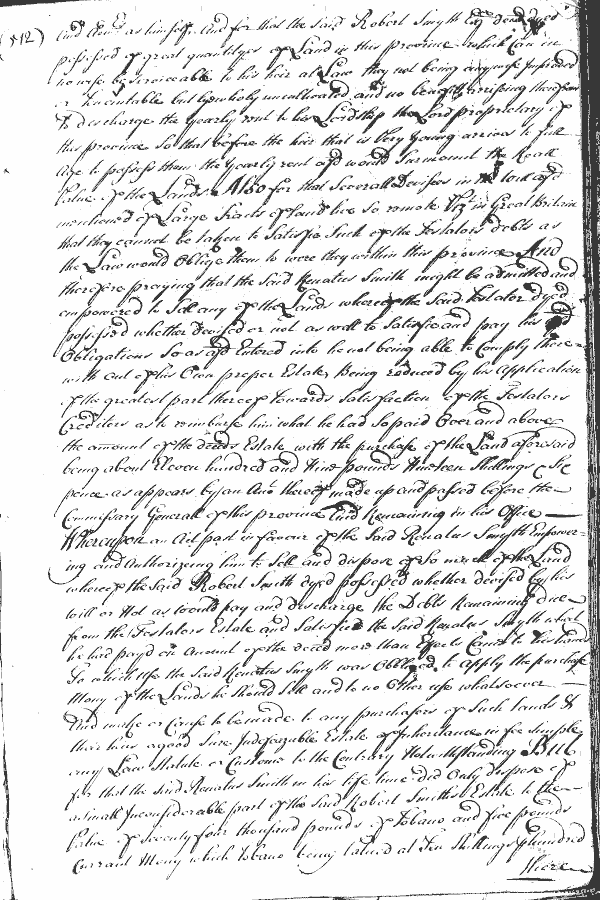 (412)
and Adm.r as himself. And for that the said Robert Smyth Esq.r Dyed
possessed of great quantitys of Land in this province which Can in
no wise be serviceable to his heir at Law they not being any wise Improved
or Tenentable but wholy uncultivated and no benefitt arrising therefrom
To discharge the yearly rent to his Lordship the Lord proprietary of
this province so that before the heir that is Very Young arrives to full
Age to possess them the yearly rent afd would Surmount the Reall
Value of the Lands Also for that Severall Devisees in the will afd
mentioned of Large Tracts of Land live so remote Vizt in Great Britain
that they cannot be taken to Satisfie Such of the Testators debts as
the Law would Oblige them to were they within this province And
therefore praying that the Said Renatus Smith might be admitted and
empowered to Sell any of the Lands whereof the Said Testator dyed
possessed whether Devised or not as well to Satisfie and pay his
Obligations So as afd Entered into he not being able to Comply there-
with out of his Own proper Estate, Being reduced by his Application
of the greatest part thereof towards Satisfaction of the Testators
Creditors as to reimburse him what he had So paid Over and above
the amount of the decds Estate with the purchase of the Land aforesaid
being about Eleven hundred and Nine pounds Nineteen Shillings & Six
pence as appears by an Acco thereof made up and passed before the
Commissary Generall of this province And Remaining in his Office
Whereupon an Act past in favour of the Said Renatus Smyth Empower-
ing and Authorizing him to Sell and dispose of So much of the Land
whereof the Said Robert Smith dyed possessed whether devised by his
will or Not as would pay and discharge the Debts Remaining due
from the Testators Estate and Satisfied the Said Renatus Smyth what
he had payd on Amount of the decd more than Effects Came to his hands
To which Use the Said Renatus Smyth was Obliged to apply the purchase
Mony of the Lands he Should Sell and to no Other use whatsoever
And make or Cause to be made to any purchasers of Such Lands &
their heirs a good Sure Indefeazable Estate of Inheritance in fee Simple
any Law Statute or Custome to the Contrary Notwithstanding But
for that the Said Renatus Smith in his life time did Only dispose of
a Small Inconsiderable part of the Said Robert Smiths Estate to the
Value of Seventy four thousand pounds of Tobacco and five pounds
Currant Mony which Tobacco being Valued at Ten Shillings p hundred
There